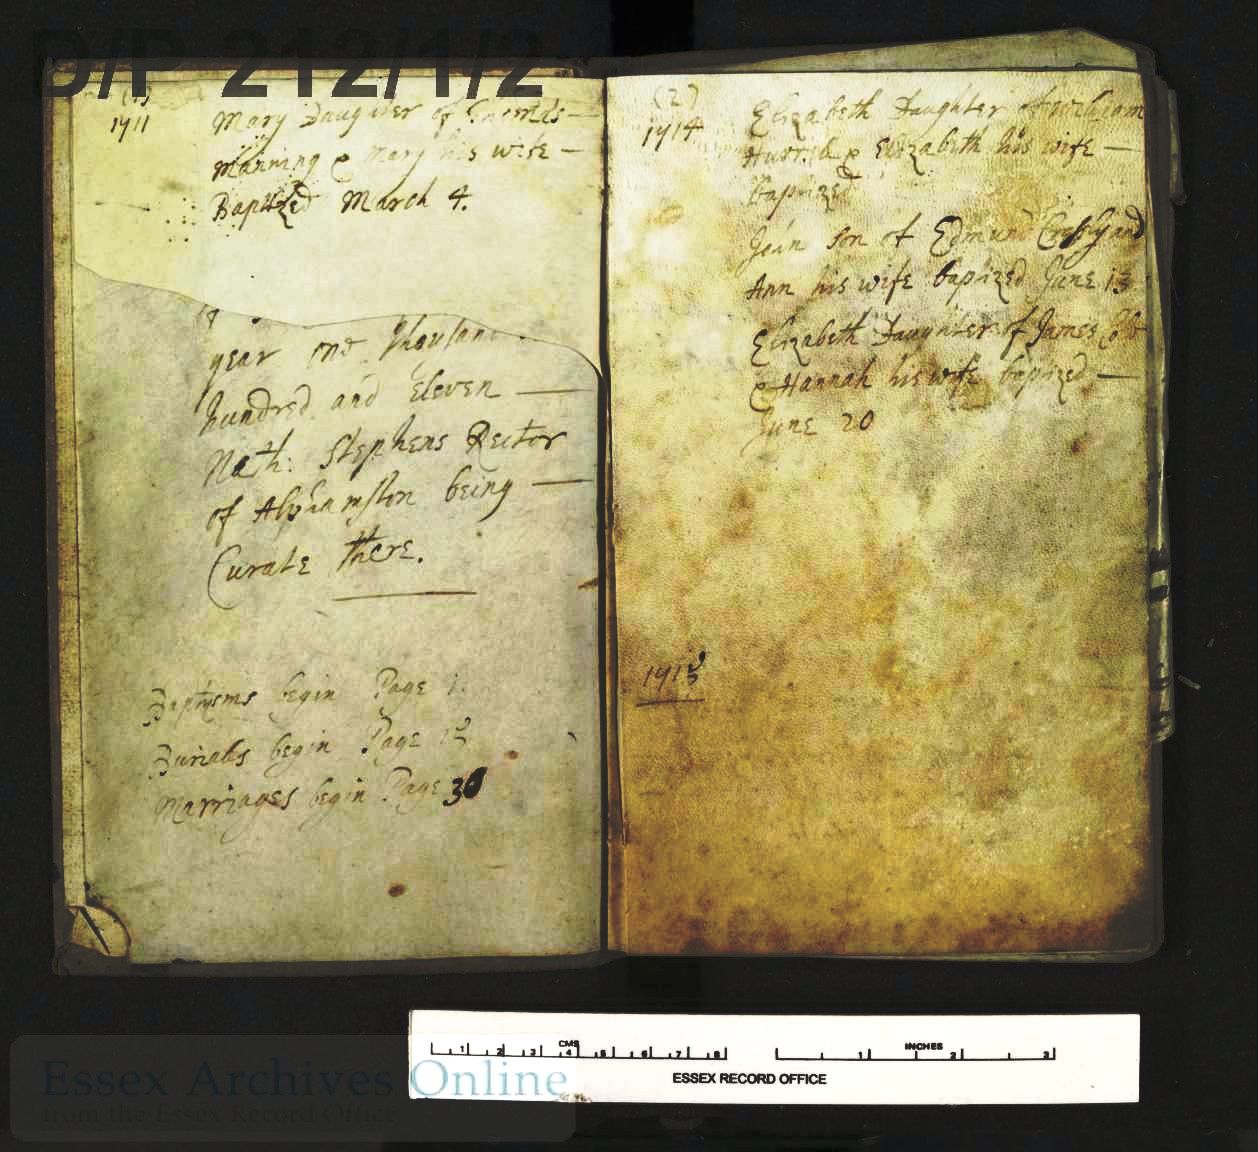 D/P 212/1/2
(1)
1711
Mary Daughter of Thomas
Manning & Mary his wife
Baptized March 4.
year one thousand
hundred and Eleven
Nath: Stephens Rector
of Alphamston being
Curate there.
Baptisms begin Page 1.
Burials begin Page
Marriages begin Page 30
(2)
1714
Elizabeth Daughter of William
& Elizabeth his wife
baptized
son of Edmund and
Ann his wife baptized June 13
Elizabeth Daughter of James
& Hannah his wife baptized
June 20
CMS
1 2 3 4 5 6 7 8
INCHES
1 2 3
ESSEX RECORD OFFICE
Essex Archives Online
from the Essex Record Office